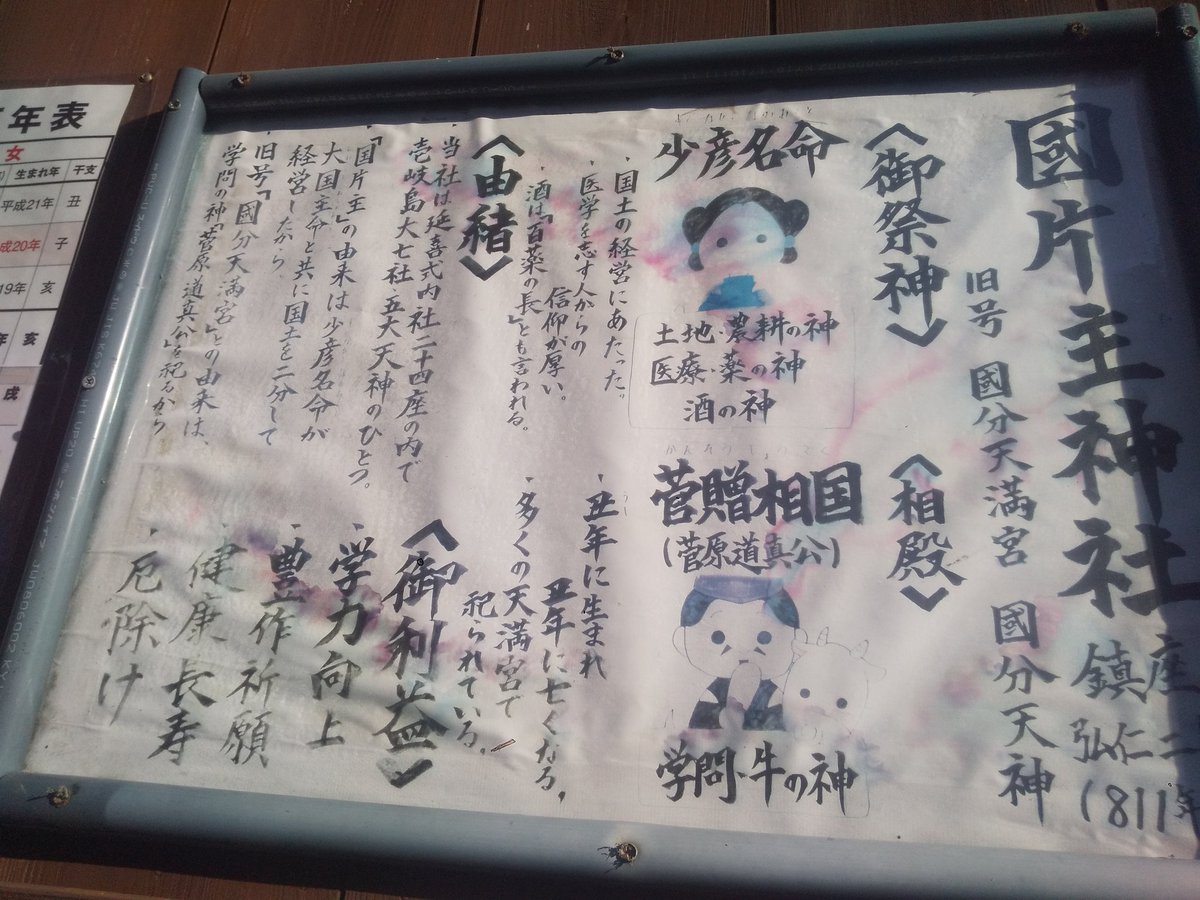 國片主神社
鎮座
弘仁二
(811年
旧号 國分天満宮 國分天神
〈御祭神〉
少彦名命
土地・農耕の神
医療・薬の神
酒の神
・国土の経営にあたった。
・医学を志す人からの
信仰が厚い。
・酒は「百薬の長」とも言われる。
〈相殿〉
かんぞうしょうこく
菅贈相国
(菅原道真公)
学問・牛の神
うし
・丑年に生まれ
丑年に亡くなる。
・多くの天満宮で
祀られている。
〈由緒〉
・当社は延喜式内社二十四座の内で
壱岐島大七社五大天神のひとつ。
・「国片主」の由来は少彦名命が
大国主命と共に国土を二分して
経営したから。
・旧号「國分天満宮」との由来は、
学問の神「菅原道真公」を祀るから
〈御利益〉
・学力向上
・豊作祈願
・健康長寿
・厄除け
年表
女
生まれ年 干支
平成21年 丑
成20年 子
19年 亥
年 亥
戌